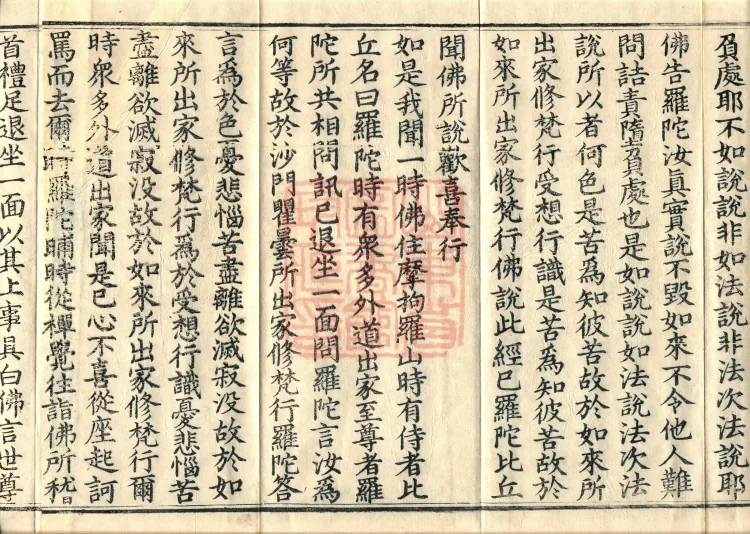 負處耶不如說說非如法說非法次法說耶
佛告羅陀汝真實說不毀如來不令他人難
問詰責墮負處也是如說說如法說法次法
說所以者何色是苦為知彼苦故於如來所
出家修梵行受想行識是苦為知彼苦故於
如來所出家修梵行佛說此經已羅陀比丘
聞佛所說歡喜奉行
如是我聞一時佛住摩拘羅山時有侍者比
丘名曰羅陀時有眾多外道出家至尊者羅
陀所共相問訊已退坐一面問羅陀言汝為
何等故於沙門瞿曇所出家修梵行羅陀答
言為於色憂悲惱苦盡離欲滅寂沒故於如
來所出家修梵行為於受想行識憂悲惱苦
盡離欲滅寂沒故於如來所出家修梵行爾
時眾多外道出家聞是已心不喜從座起訶
罵而去爾時羅陀晡時從禪覺往詣佛所稽
首禮足退坐一面以其上事具白佛言世尊